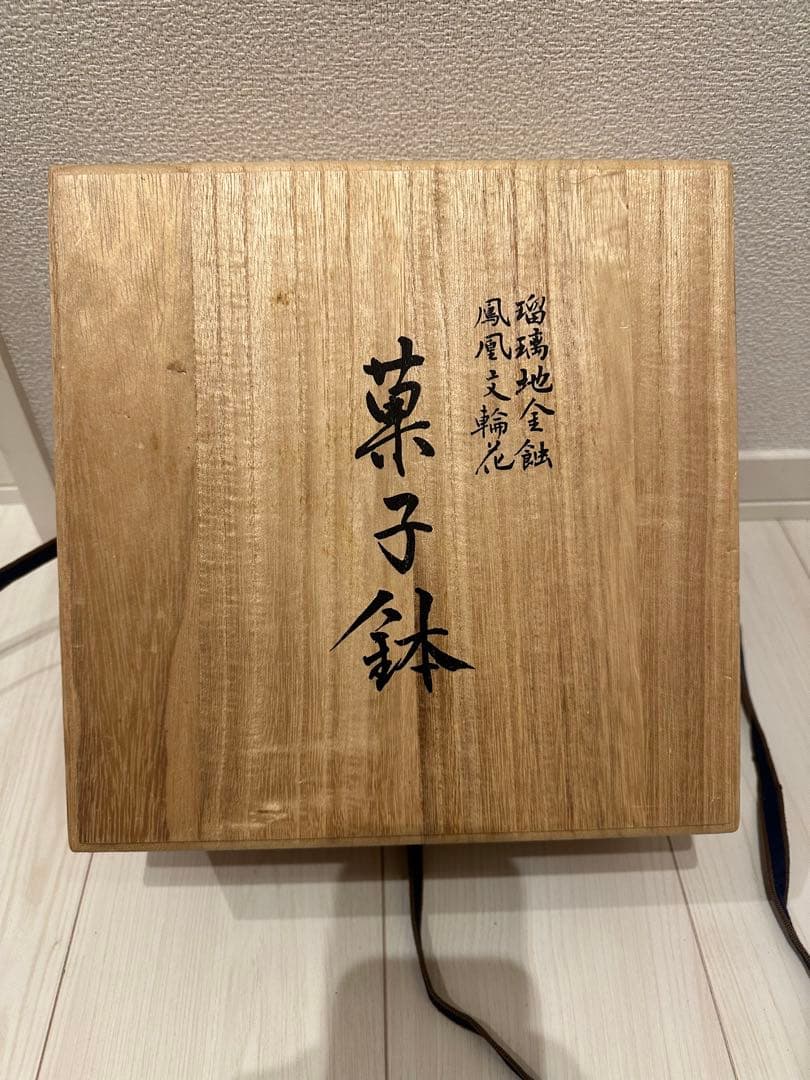 瑠璃地金蝕
鳳凰文輪花
菓子鉢